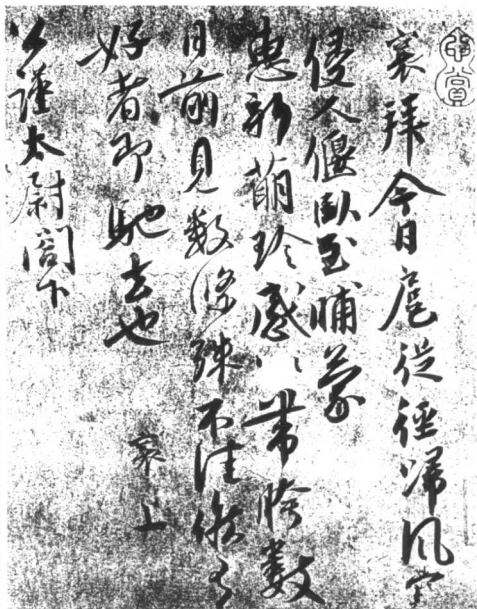 襄拜今日扈從徑歸風寒
侵人偃臥至晡蒙
惠新萠珍感〻帶胯數
日前見數條殊不佳候有
好者即馳去也 襄上
公謹太尉閣下